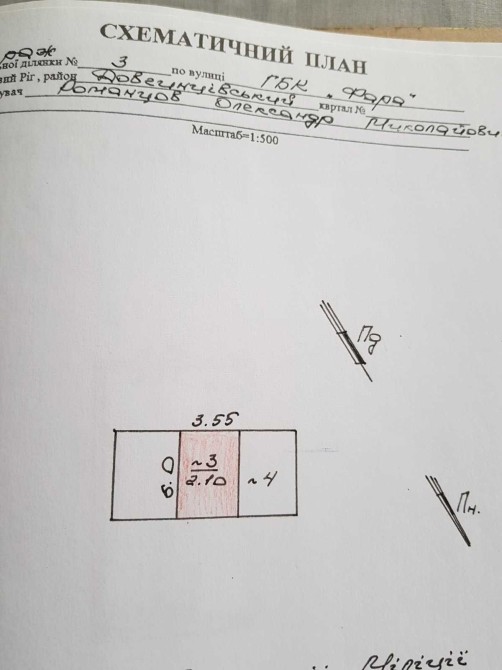 СХЕМАТИЧНИЙ ПЛАН
ної ділянки № 3 по вулиці ГБК "Фара"
вий Ріг, район Довгинцівський квартал №
увач Романцов Олександр Миколайови
Масштаб=1:500
Пд
3.55
6.0
~3
2.10
~4
Пн.